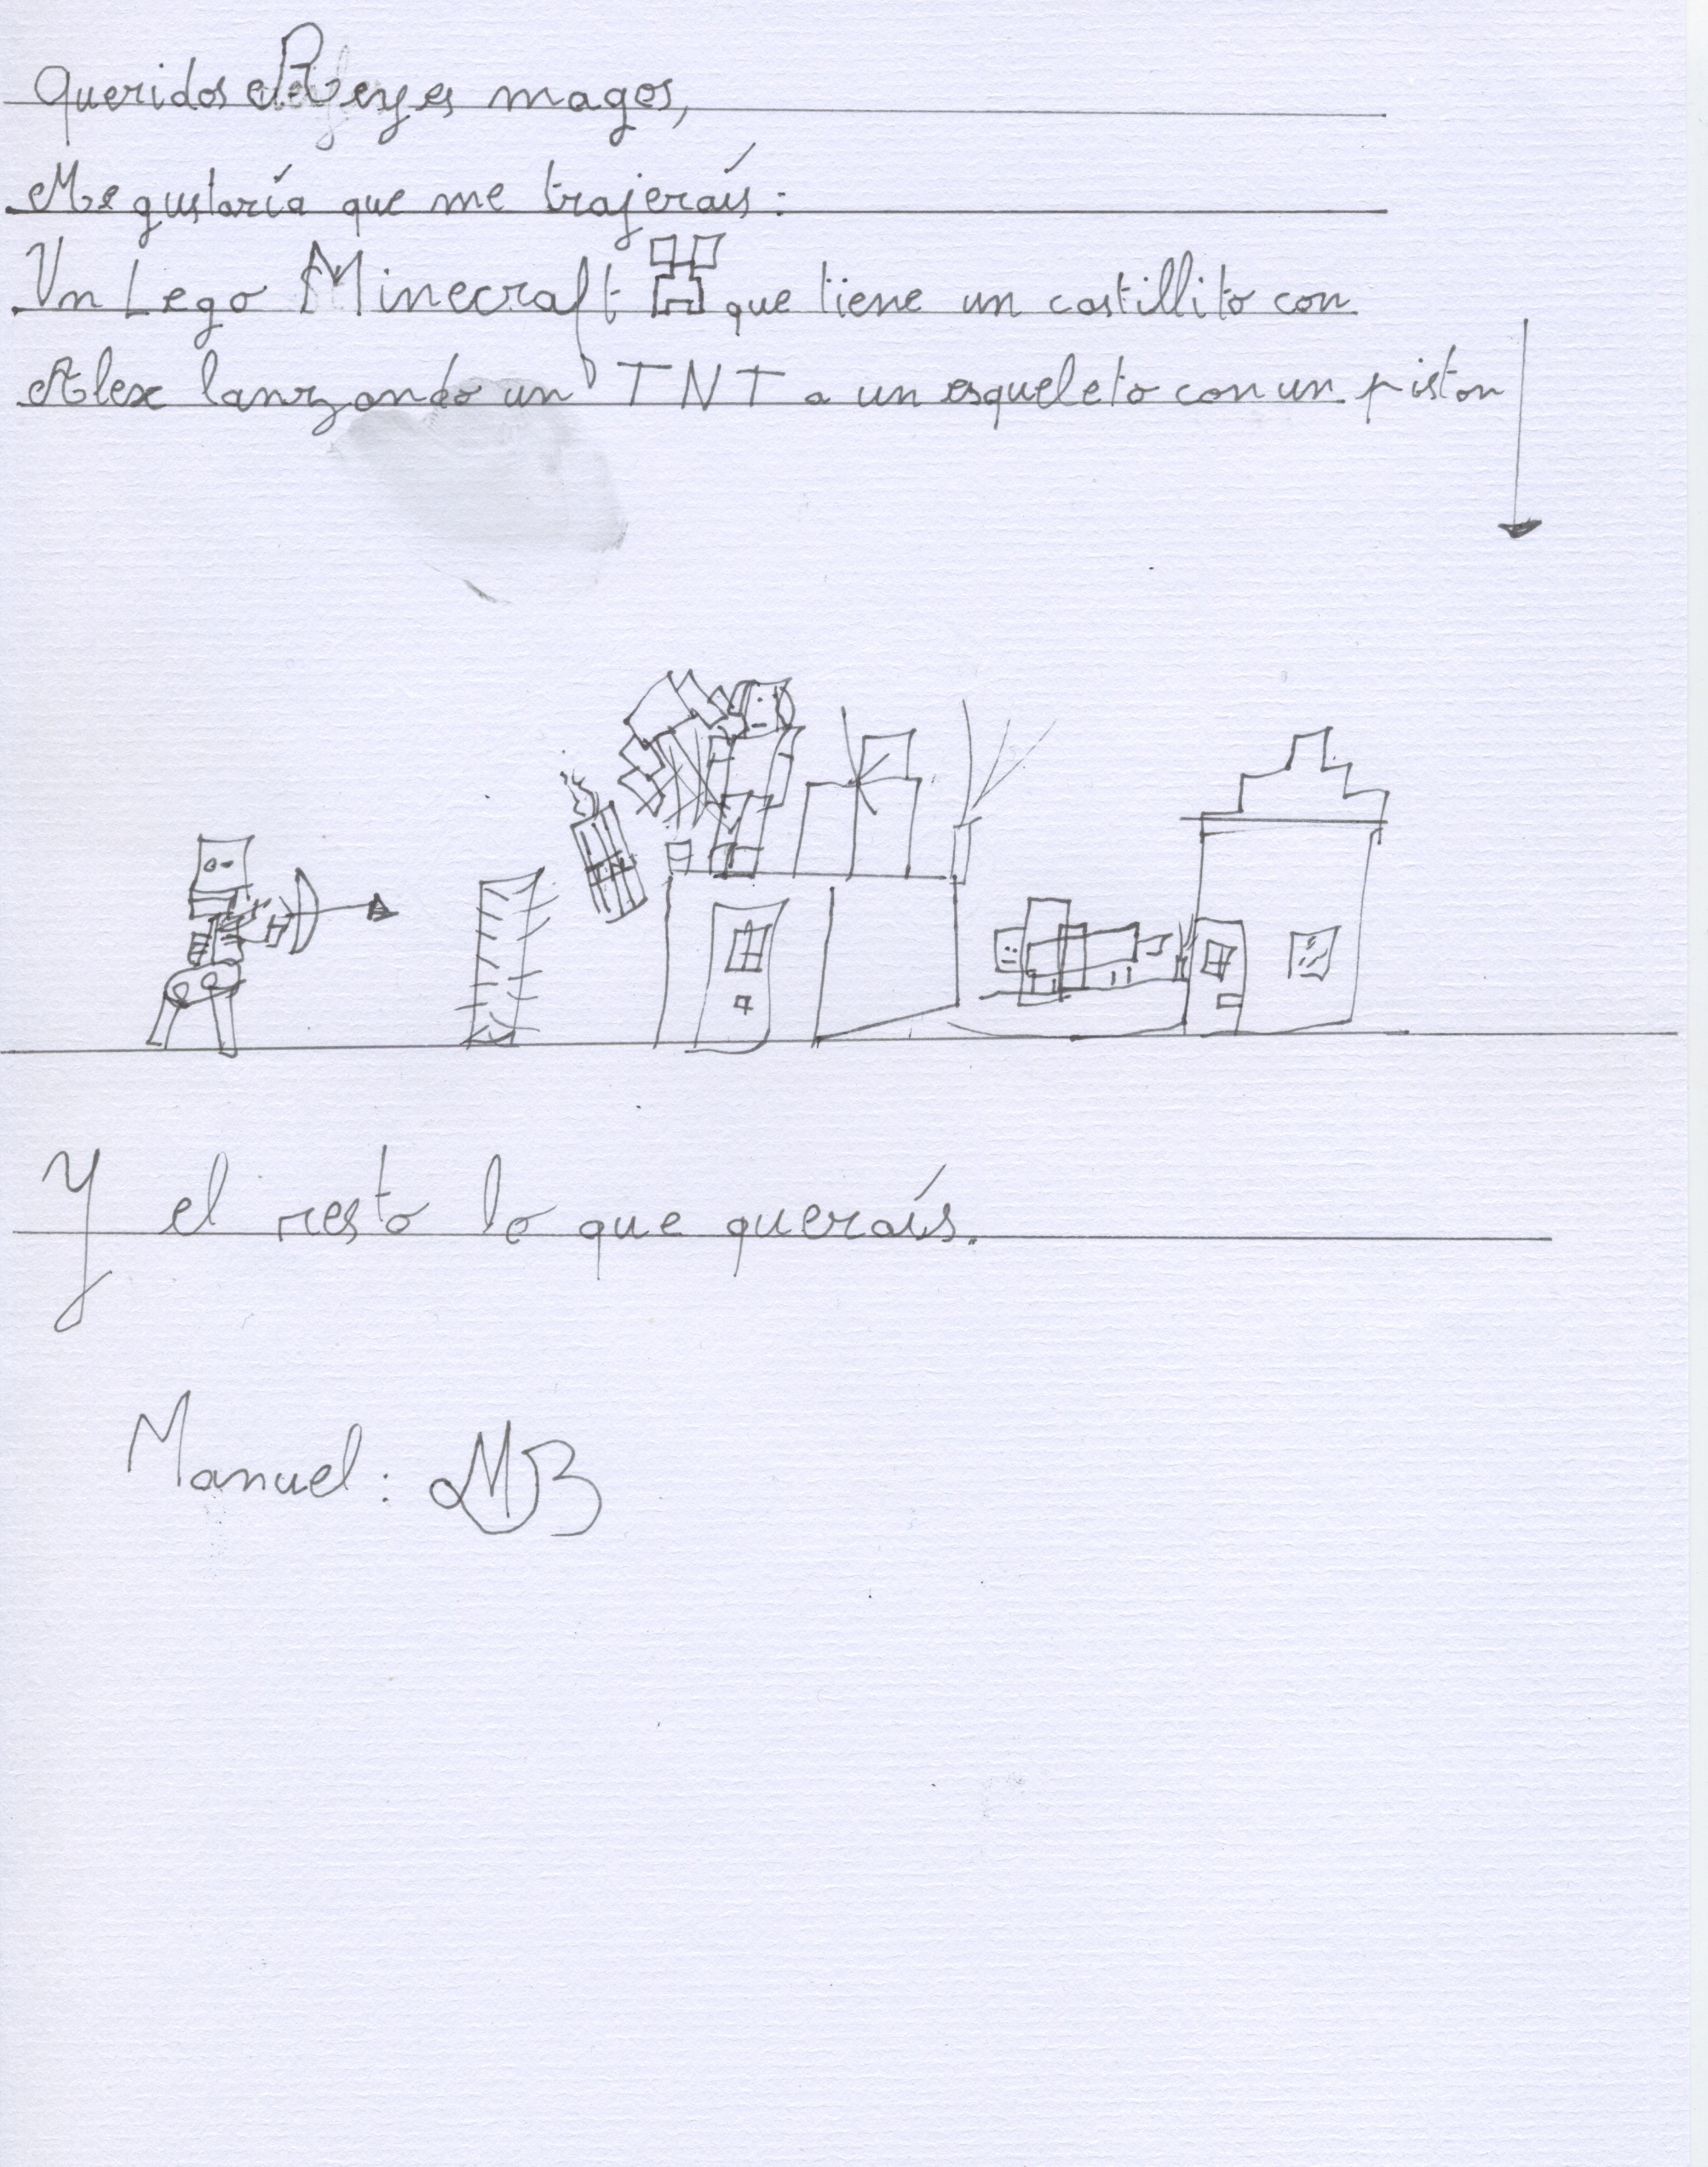 Queridos Reyes magos,
Me gustaría que me trajeraís:
Un Lego Minecraft que tiene un castillito con
Alex lanzando un TNT a un esqueleto con un piston
Y el resto lo que queraís.
Manuel: MB